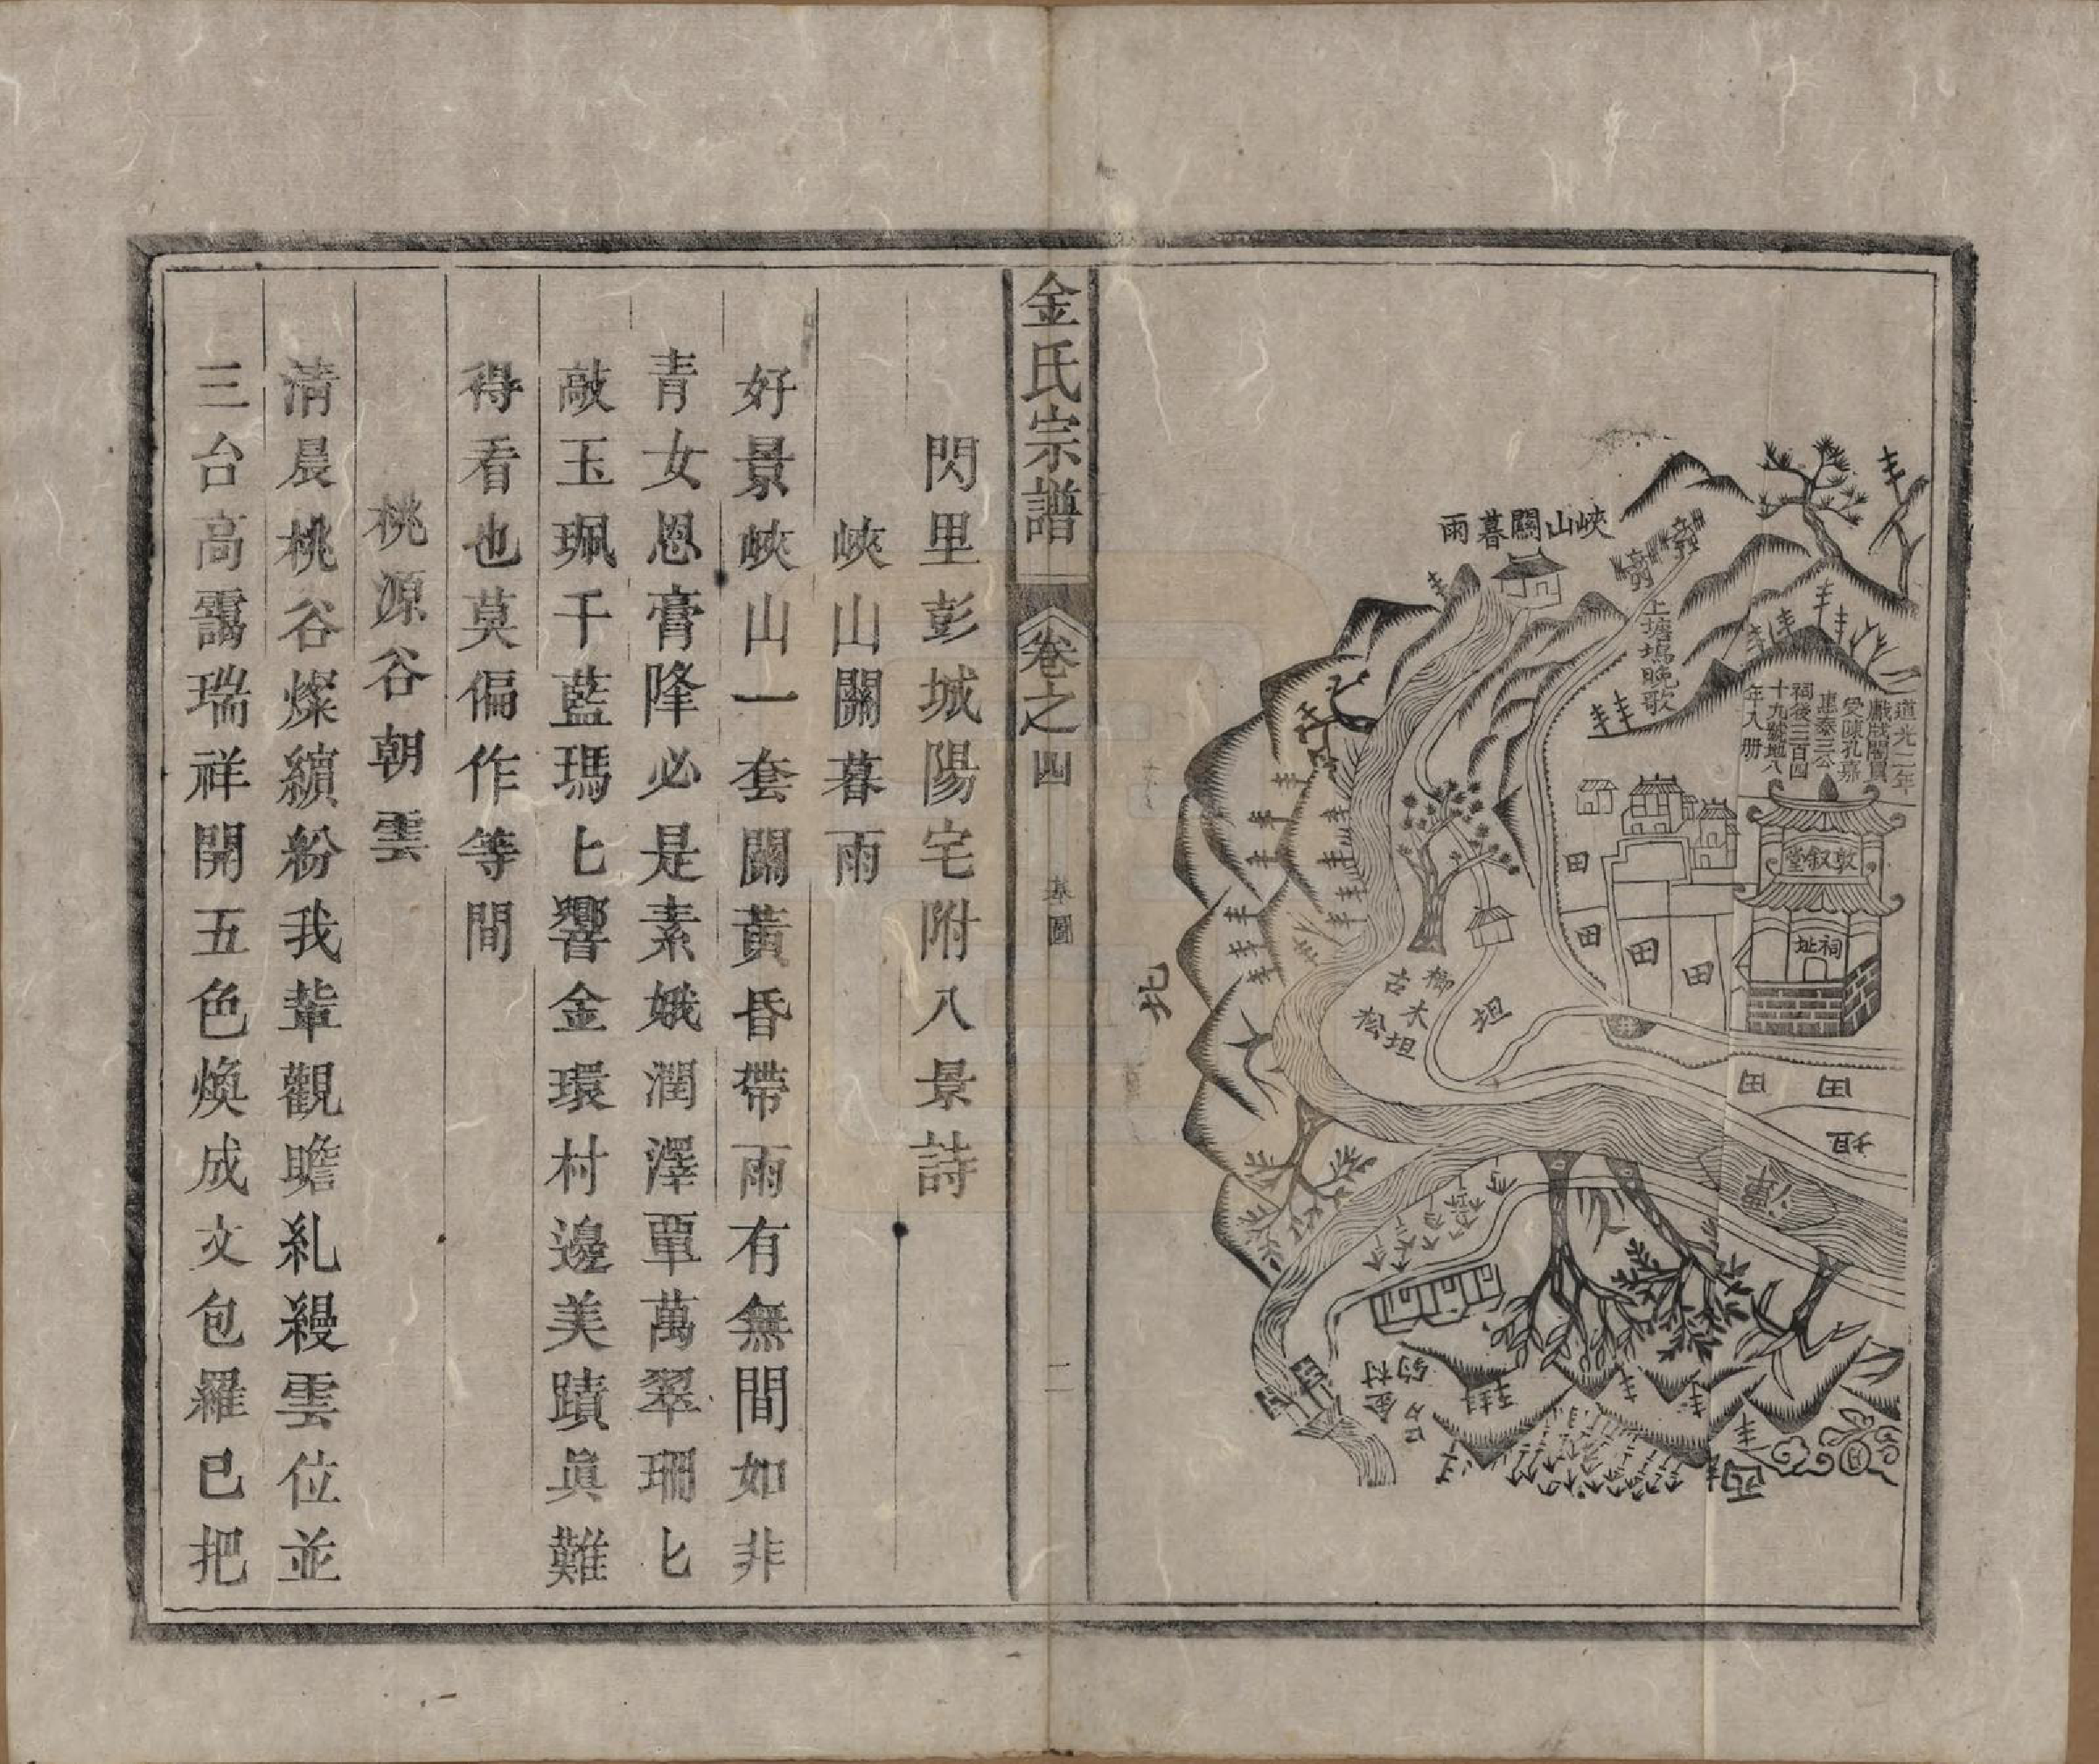 峽山關暮雨
上塘塢晚歌
道光二年
戲戲閣員
受陳孔嘉
惠泰三公
祠後三百四
十九號地八
年入册
敦叙堂
祠址
田
田
田
田
井
坦
古松
大坦
北
田
田
坦
潭
村
金
西
月
金氏宗譜
卷之四
基圖
二
閃里彭城陽宅附八景詩
峽山關暮雨
好景峽山一套關黃昏帶雨有無間如非
青女恩膏降必是素娥潤澤覃萬翠珊匕
敲玉珮千藍瑪匕響金環村邊美蹟眞難
得看也莫偏作等間
桃源谷朝雲
清晨桃谷燦繽紛我輩觀瞻糺縵雲位並
三台高靄瑞祥開五色煥成文包羅已把